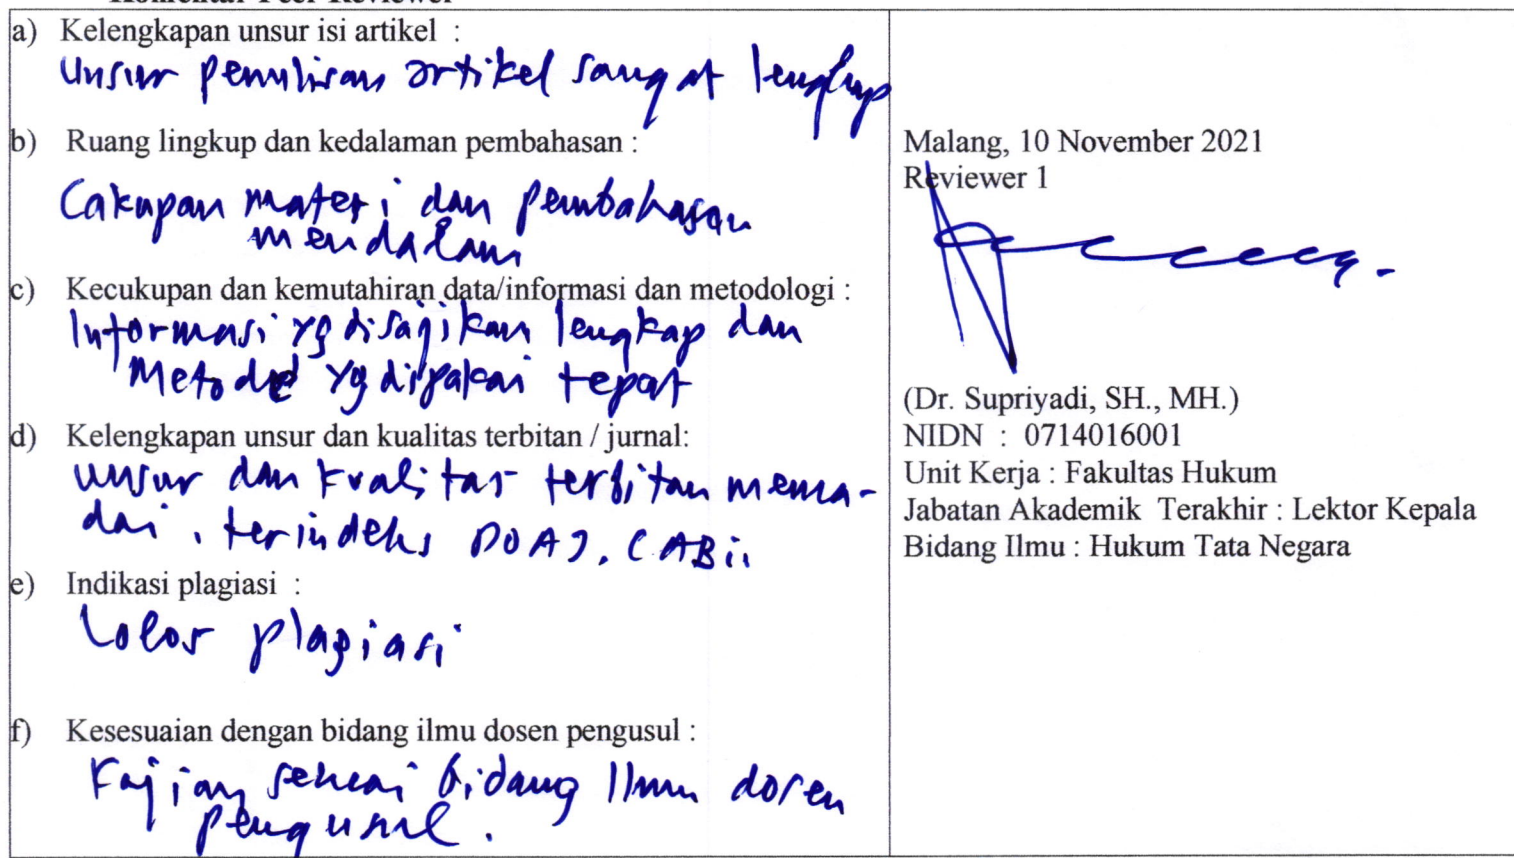 Komentar Peer Reviewer
a) Kelengkapan unsur isi artikel :
Unsur penulisan artikel sangat lengkap
b) Ruang lingkup dan kedalaman pembahasan :
Cakupan materi dan pembahasan
mendalam
c) Kecukupan dan kemutahiran data/informasi dan metodologi :
Informasi yg disajikan lengkap dan
Metode yg dipakai tepat
d) Kelengkapan unsur dan kualitas terbitan / jurnal:
unsur dan kualitas terbitan mema-
dai, terindeks DOAJ, CABi
e) Indikasi plagiasi :
Lolos plagiasi
f) Kesesuaian dengan bidang ilmu dosen pengusul :
Kajian sesuai bidang Ilmu dosen
pengusul.
Malang, 10 November 2021
Reviewer 1
(Dr. Supriyadi, SH., MH.)
NIDN : 0714016001
Unit Kerja : Fakultas Hukum
Jabatan Akademik Terakhir : Lektor Kepala
Bidang Ilmu : Hukum Tata Negara